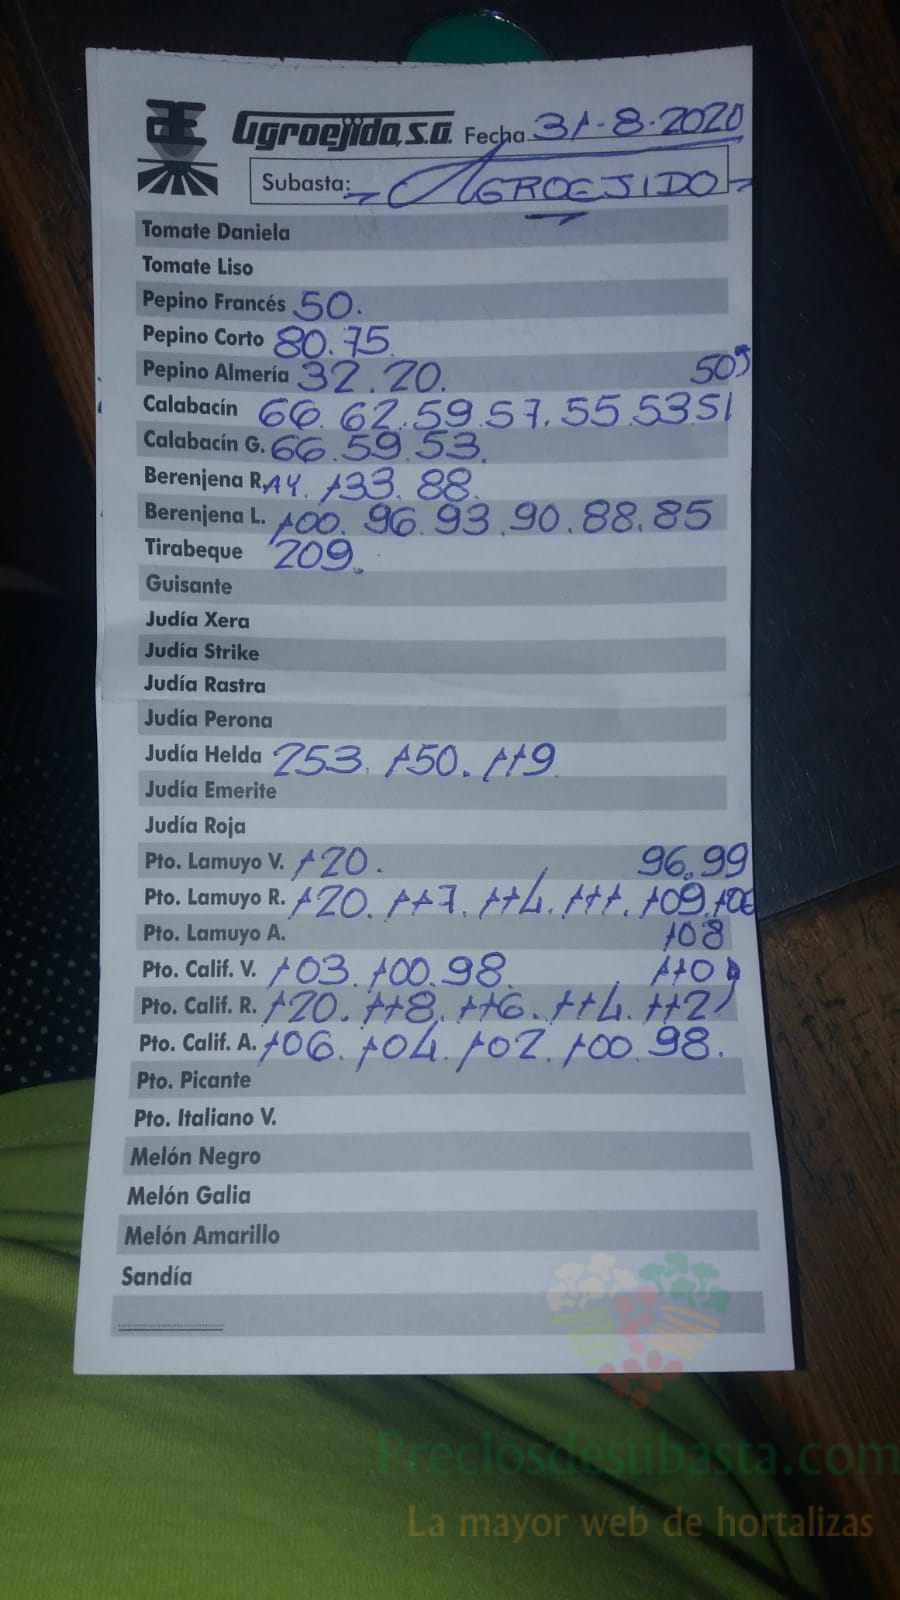 Agroejido, S.A. Fecha 31-8-2020
Subasta: AGROEJIDO
Tomate Daniela
Tomate Liso
Pepino Francés 50.
Pepino Corto 80.75
Pepino Almería 32.20. 50
Calabacín 66.62.59.57.55.53 51
Calabacín G. 66.59.53.
Berenjena R. 133.88.
Berenjena L. 100.96.93.90.88.85
Tirabeque 209.
Guisante
Judía Xera
Judía Strike
Judía Rastra
Judía Perona
Judía Helda 253.150.119
Judía Emerite
Judía Roja
Pto. Lamuyo V. 120. 96.99
Pto. Lamuyo R. 120.117.114.111.109.106
Pto. Lamuyo A. 108
Pto. Calif. V. 103.100.98. 110
Pto. Calif. R. 120.118.116.114.112
Pto. Calif. A. 106.104.102.100.98.
Pto. Picante
Pto. Italiano V.
Melón Negro
Melón Galia
Melón Amarillo
Sandía
Preciosdesubasta.com
La mayor web de hortalizas